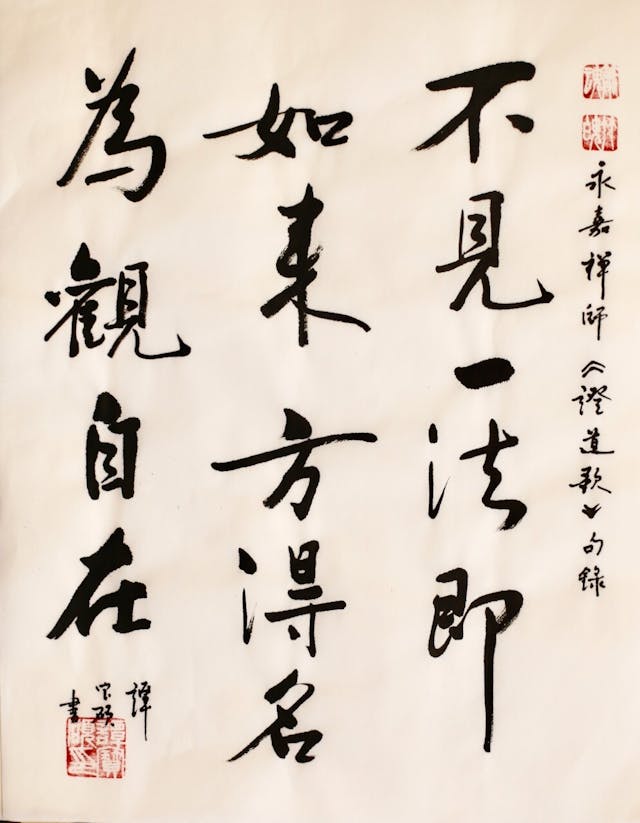 永嘉禅師《證道歌》句錄
不見一法即
如来方得名
為觀自在
譚
書